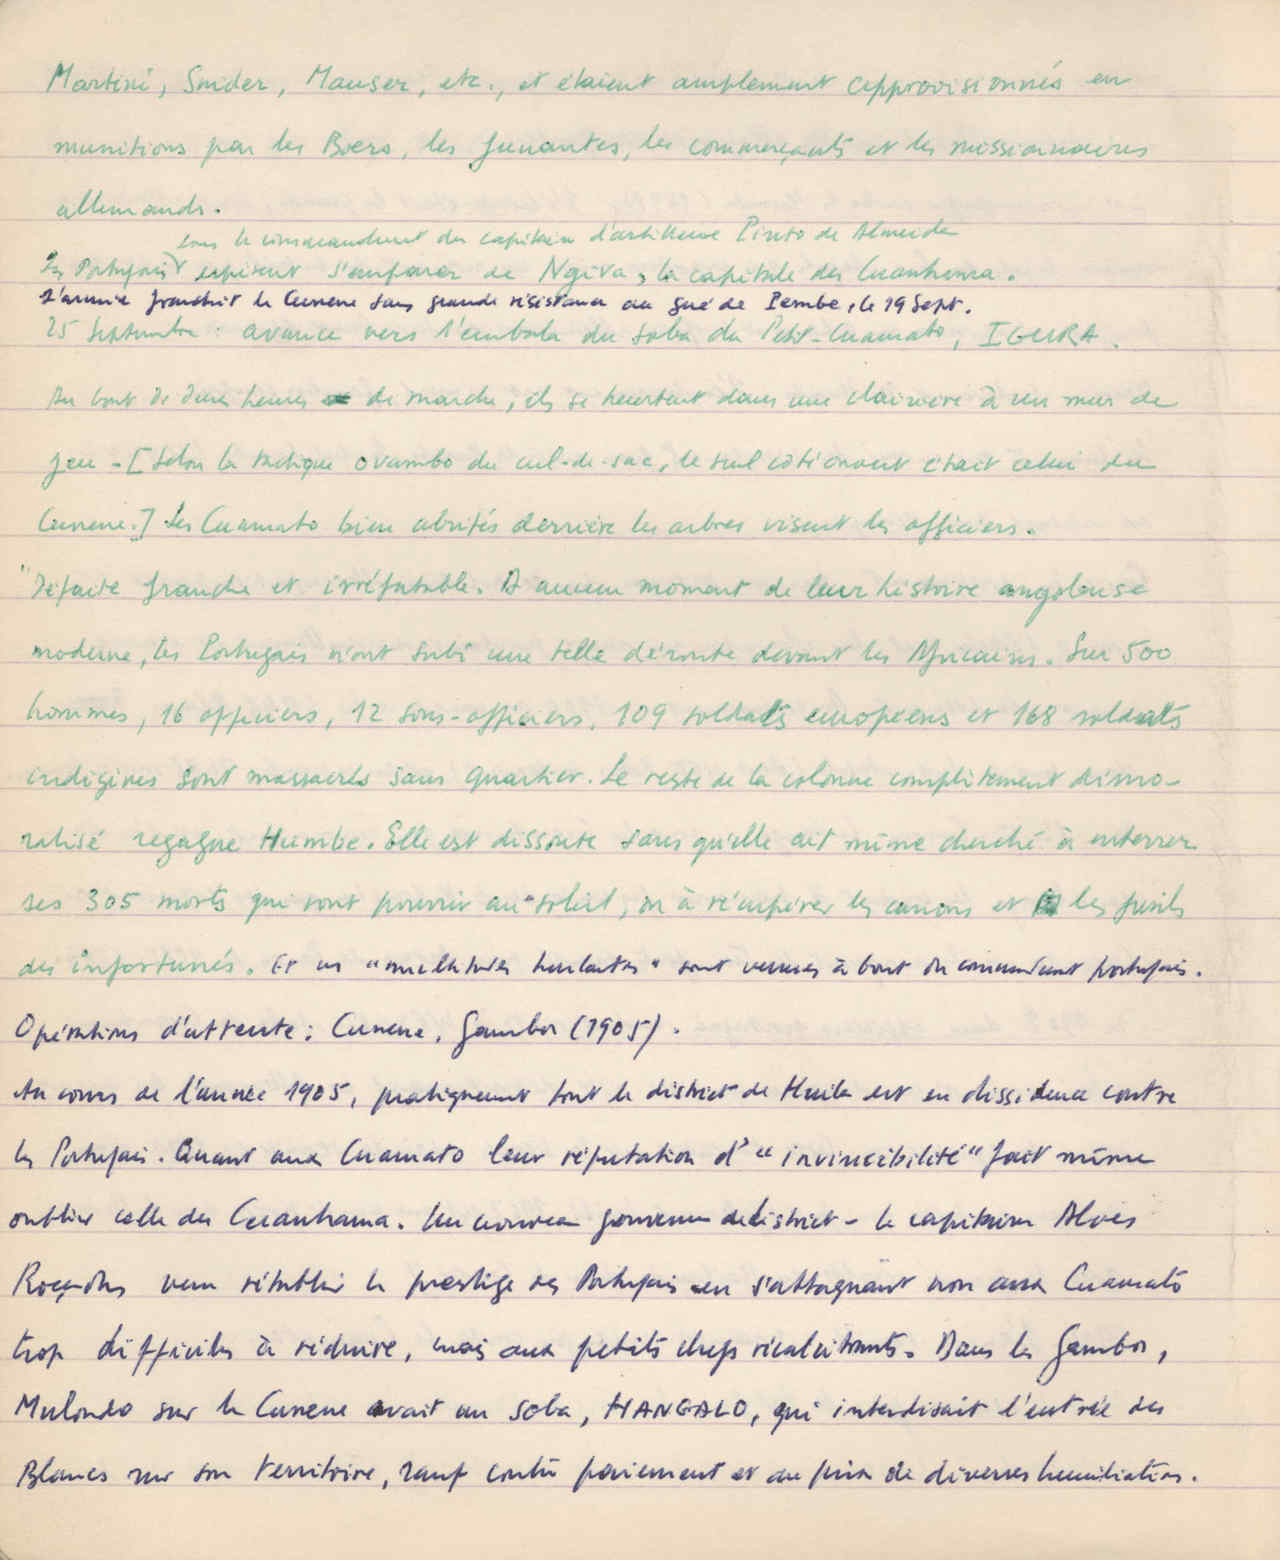 Martini, Snider, Mauser, etc., et étaient amplement approvisionnés en
munitions par les Boers, les funantes, les commerçants et les missionnaires
allemands.
sous le commandement du capitaine d'artillerie Pinto de Almeida
Les Portugais espèrent s'emparer de Ngiva, la capitale des Cuanhama.
L'armée franchit le Cunene sans grande résistance au gué de Pembe, le 19 Sept.
25 Septembre : avance vers l'embala du soba du Petit-Cuamato, IGURA.
Au bout de deux heures de marche, ils se heurtent dans une clairière à un mur de
feu - [Selon la tactique ovambo du cul-de-sac, le seul était celui du
Cunene.] Les Cuamato bien abrités derrière les arbres visent les officiers.
"Défaite franche et irréfutable. A aucun moment de leur histoire angolaise
moderne, les Portugais n'ont subi une telle déroute devant les Africains. Sur 500
hommes, 16 officiers, 12 sous-officiers, 109 soldats européens et 168 soldats
indigènes sont massacrés sans quartier. Le reste de la colonne complètement démo-
ralisé regagne Humbe. Elle est dissoute sans qu'elle ait même cherché à enterrer
ses 305 morts qui vont pourrir au soleil, ou à récupérer les canons et les fusils
des infortunés. Et ces "multitudes hurlantes" sont venues à bout du commandant portugais.
Opérations d'attente : Cunene, Gambos (1905).
Au cours de l'année 1905, pratiquement tout le district de Huila est en dissidence contre
les Portugais. Quant aux Cuamato leur réputation d'"invincibilité" fait même
oublier celle des Cuanhama. Un nouveau gouverneur de district - le capitaine Alves
Roçadas veut rétablir le prestige des Portugais en s'attaquant non aux Cuamato
trop difficiles à réduire, mais aux petits chefs récalcitrants. Dans les Gambos,
Mulondo sur le Cunene avait un soba, HANGALO, qui interdisait l'entrée des
Blancs sur son territoire, sauf contre paiement et au prix de diverses humiliations.